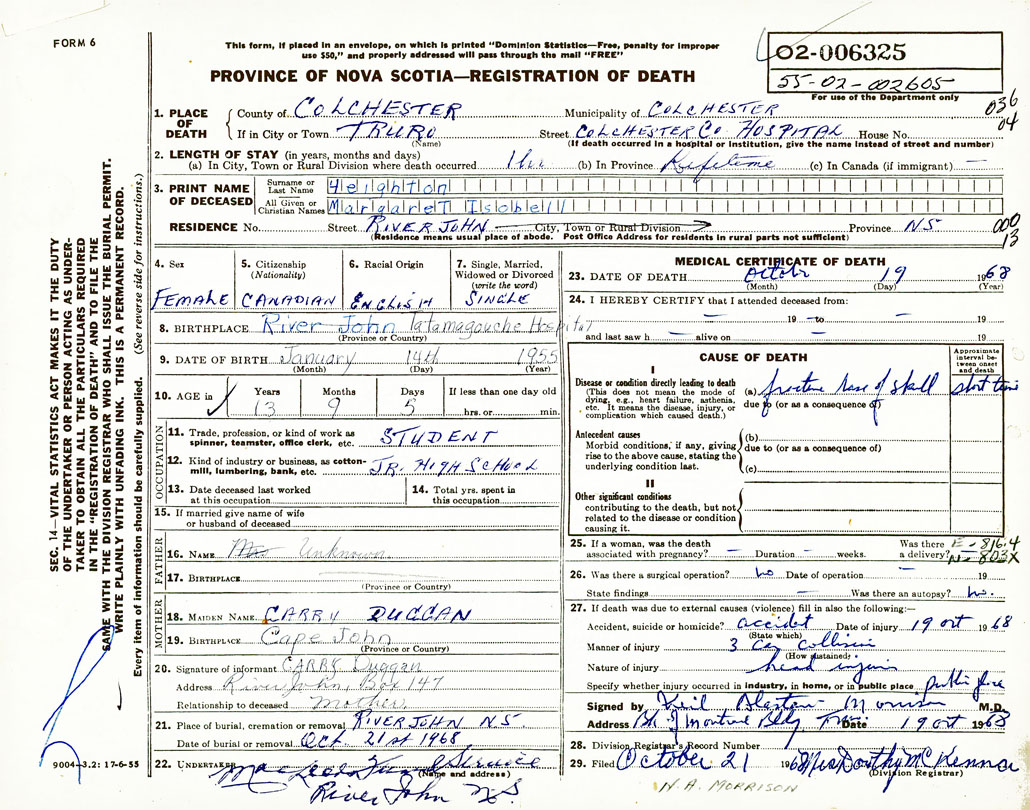 FORM 6
This form, if placed in an envelope, on which is printed "Dominion Statistics—Free, penalty for improper
use $50," and properly addressed will pass through the mail "FREE"
PROVINCE OF NOVA SCOTIA—REGISTRATION OF DEATH
02-006325
55-02-002605
For use of the Department only
036
04
1. PLACE OF DEATH
County of COLCHESTER Municipality of COLCHESTER
If in City or Town TRURO Street COLCHESTER CO. HOSPITAL House No.
(Name) (If death occurred in a hospital or institution, give the name instead of street and number)
2. LENGTH OF STAY (in years, months and days)
(a) In City, Town or Rural Division where death occurred 1 hr (b) In Province Lifetime (c) In Canada (if immigrant) —
3. PRINT NAME OF DECEASED
Surname or Last Name Heighton
All Given or Christian Names Margaret Isobell
RESIDENCE No. Street RIVER JOHN — City, Town or Rural Division Province NS
(Residence means usual place of abode. Post Office Address for residents in rural parts not sufficient)
000
13
4. Sex
FEMALE
5. Citizenship
(Nationality)
CANADIAN
6. Racial Origin
ENGLISH
7. Single, Married,
Widowed or Divorced
(write the word)
SINGLE
8. BIRTHPLACE River John Tatamagouche Hospital
(Province or Country)
9. DATE OF BIRTH January 14th 1955
(Month) (Day) (Year)
10. AGE in Years Months Days If less than one day old
13 9 5 hrs. or min.
OCCUPATION
11. Trade, profession, or kind of work as
spinner, teamster, office clerk, etc. STUDENT
12. Kind of industry or business, as cotton-
mill, lumbering, bank, etc. JR. HIGH SCHOOL
13. Date deceased last worked
at this occupation
14. Total yrs. spent in
this occupation
15. If married give name of wife
or husband of deceased
FATHER
16. NAME Unknown
17. BIRTHPLACE
(Province or Country)
MOTHER
18. MAIDEN NAME CARRY DUGGAN
19. BIRTHPLACE Cape John
(Province or Country)
20. Signature of informant CARRY Duggan
Address River John, Box 147
Relationship to deceased mother
21. Place of burial, cremation or removal RIVER JOHN NS
Date of burial or removal Oct. 21st 1968
22. UNDERTAKER MacLeod Funeral Service
(Name and address)
River John N.S.
MEDICAL CERTIFICATE OF DEATH
23. DATE OF DEATH October 19 1968
(Month) (Day) (Year)
24. I HEREBY CERTIFY that I attended deceased from:
— 19 — to — 19
and last saw h — alive on — 19
CAUSE OF DEATH
Approximate
interval be-
tween onset
and death
I
Disease or condition directly leading to death
(This does not mean the mode of
dying, e.g., heart failure, asthenia,
etc. It means the disease, injury, or
complication which caused death.)
(a) fracture base of skull short time
due to (or as a consequence of)
Antecedent causes
Morbid conditions, if any, giving
rise to the above cause, stating the
underlying condition last.
(b)
due to (or as a consequence of)
(c)
II
Other significant conditions
contributing to the death, but not
related to the disease or condition
causing it.
25. If a woman, was the death
associated with pregnancy? — Duration — weeks. Was there
a delivery? —
E-816.4
N-803X
26. Was there a surgical operation? no Date of operation — 19
State findings — Was there an autopsy? no.
27. If death was due to external causes (violence) fill in also the following:—
Accident, suicide or homicide? accident Date of injury 19 oct 1968
(State which)
Manner of injury 3 car collision
(How sustained)
Nature of injury head injury
Specify whether injury occurred in industry, in home, or in public place public place
Signed by M.D.
Address Bk of Montreal Bldg, Truro Date 19 oct 1968
28. Division Registrar's Record Number
29. Filed October 21 1968 Mrs Dorothy McKenna
(Division Registrar)
N.A. MORRISON
SEC. 14—VITAL STATISTICS ACT MAKES IT THE DUTY
OF THE UNDERTAKER OR PERSON ACTING AS UNDER-
TAKER TO OBTAIN ALL THE PARTICULARS REQUIRED
IN THE "REGISTRATION OF DEATH" AND TO FILE THE
SAME WITH THE DIVISION REGISTRAR WHO SHALL ISSUE THE BURIAL PERMIT.
WRITE PLAINLY WITH UNFADING INK. THIS IS A PERMANENT RECORD.
Every item of information should be carefully supplied. (See reverse side for instructions.)
9004—3.2: 17-6-55